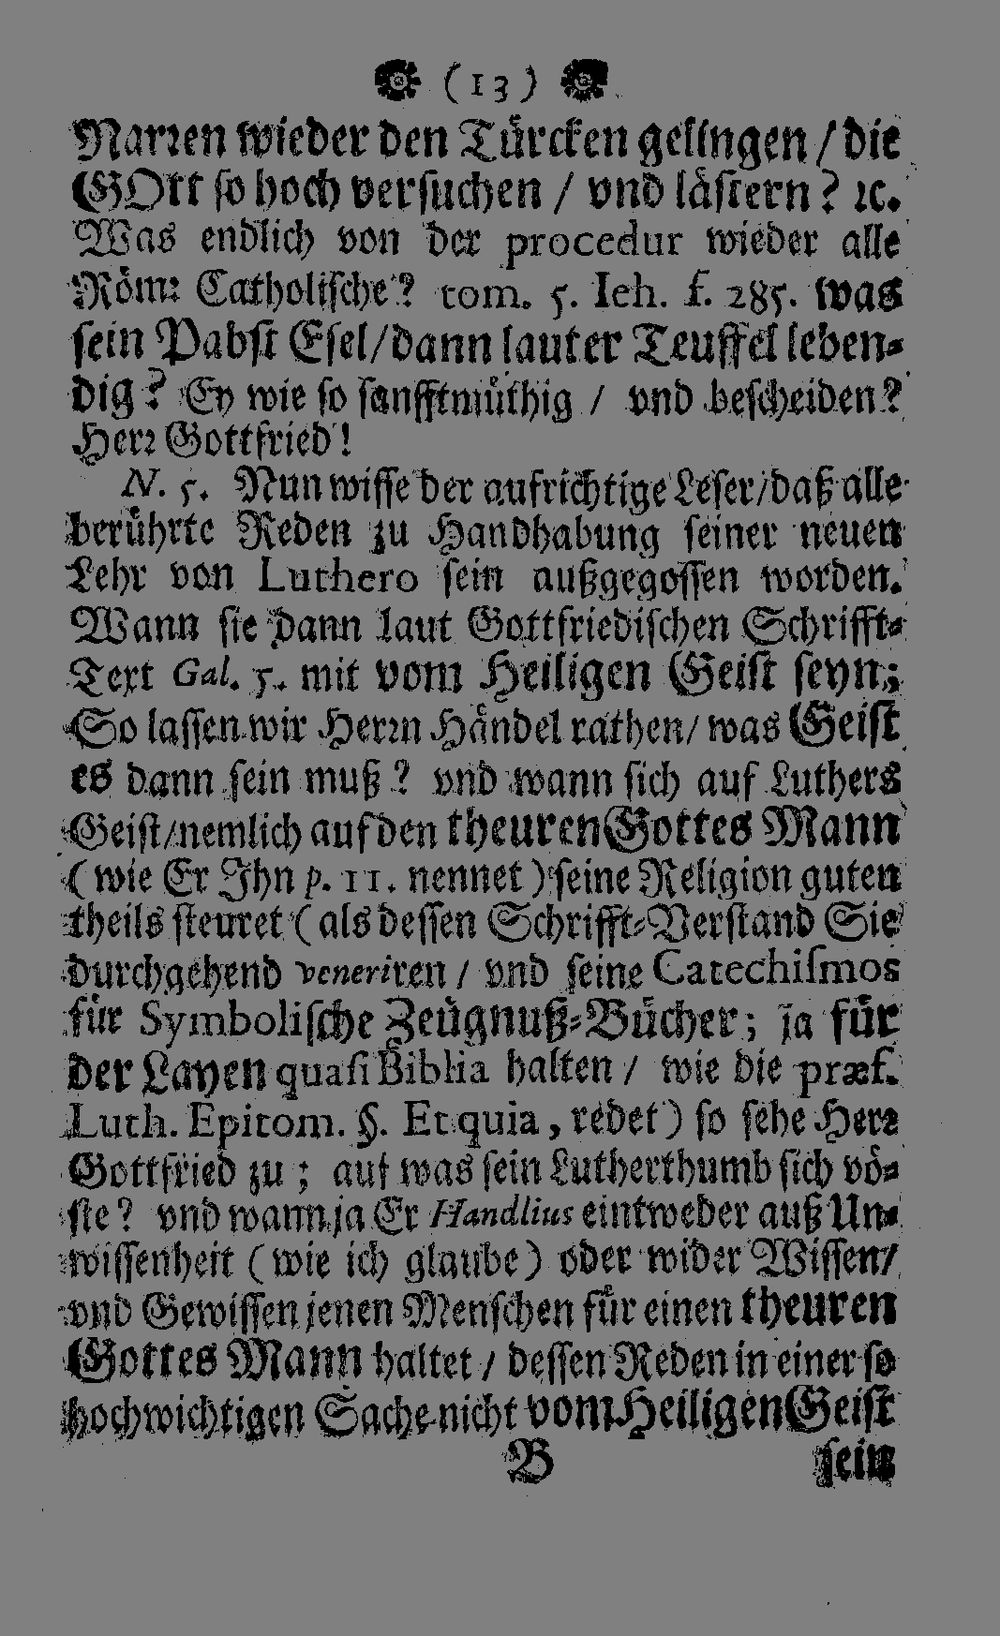 (13)
Narꝛen wieder den Türcken gelingen / die
GOtt so hoch versuchen / vnd lästern? ꝛc.
Was endlich von der procedur wieder alle
Röm: Catholische? tom. 5. Ieh. f. 285. was
sein Pabst Esel/dann lauter Teuffel leben-
dig? Ey wie so sanfftmüthig / vnd bescheiden?
Herꝛ Gottfried!
N. 5. Nun wisse der aufrichtige Leser/daß alle
berührte Reden zu Handhabung seiner neuen
Lehr von Luthero sein außgegossen worden.
Wann sie dann laut Gottfriedischen Schrifft-
Text Gal. 5. mit vom Heiligen Geist seyn;
So lassen wir Herꝛn Händel rathen/ was Geist
es dann sein muß? vnd wann sich auf Luthers
Geist/nemlich auf den theuren Gottes Mann
(wie Er Jhn p. 11. nennet) seine Religion guten
theils steuret (als dessen Schrifft-Verstand Sie
durchgehend veneriren / vnd seine Catechiſmos
für Symbolische Zeügnuß-Bücher; ja für
der Layen quaſi Biblia halten / wie die præf.
Luth. Epitom. §. Et quia, redet) so sehe Herꝛ
Gottfried zu; auf was sein Lutherthumb sich vö-
ste? vnd wann ja Er Handlius eintweder auß Un-
wissenheit (wie ich glaube) oder wider Wissen/
vnd Gewissen jenen Menschen für einen theuren
Gottes Mann haltet / dessen Reden in einer so
hochwichtigen Sache nicht vom Heiligen Geist
B sein